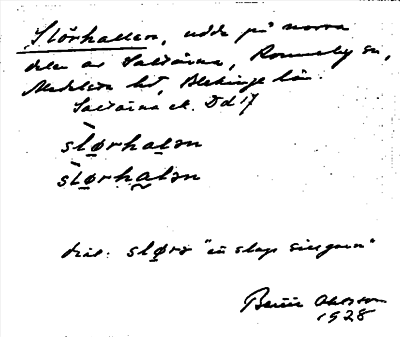 Slörhallen, udde på norra
delen av Saltärna, Ronneby sn,
Medelsta hd, Blekinge län.
Saltärna ek. Dd17
slørhalən
slørhalən
dial. slørə "en slags sill garn"
1928